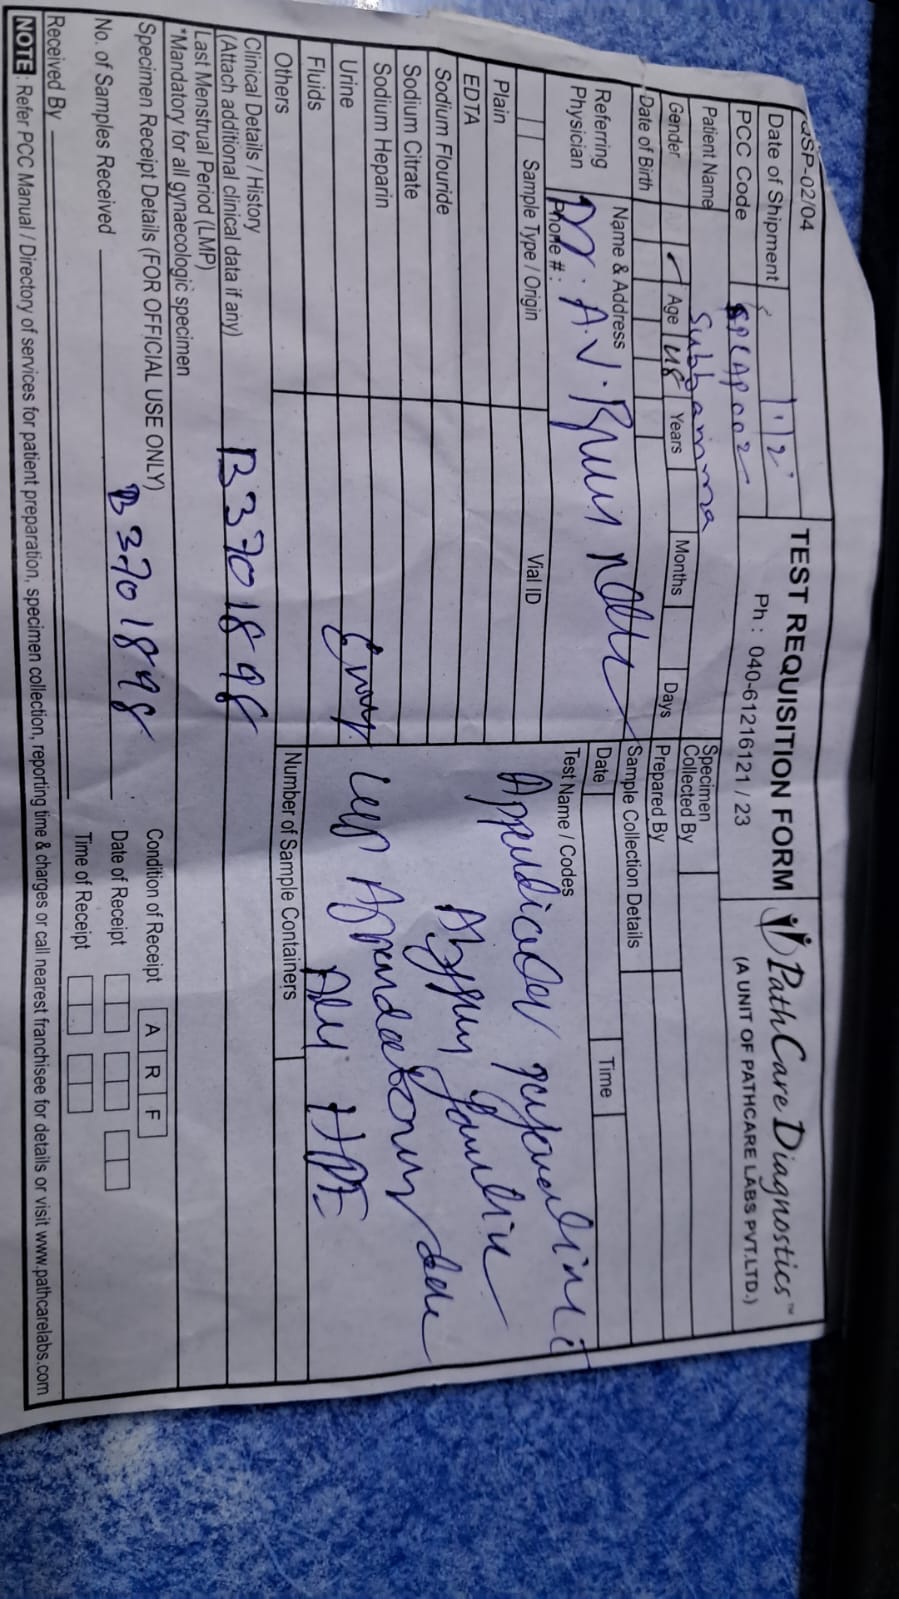 QSP-02/04
TEST REQUISITION FORM
Ph : 040-61216121 / 23
PathCare Diagnostics™
(A UNIT OF PATHCARE LABS PVT.LTD.)
Date of Shipment 1/12
PCC Code
Patient Name Subbamma
Gender Age 48 Years Months Days
Date of Birth
Specimen Collected By
Prepared By
Sample Collection Details
Date Time
Referring Physician
Name & Address
Dr. A.V.
Phone # :
Sample Type / Origin Vial ID
Test Name / Codes
Plain
EDTA
Sodium Flouride
Sodium Citrate
Sodium Heparin
Urine
Fluids
Others
Appendicular
HPE
Number of Sample Containers
Clinical Details / History
(Attach additional clinical data if any) B3701898
Last Menstrual Period (LMP)
*Mandatory for all gynaecologic specimen
Specimen Receipt Details (FOR OFFICIAL USE ONLY)
Condition of Receipt A R F
No. of Samples Received B3701898
Date of Receipt
Received By
Time of Receipt
NOTE : Refer PCC Manual / Directory of services for patient preparation, specimen collection, reporting time & charges or call nearest franchisee for details or visit www.pathcarelabs.com